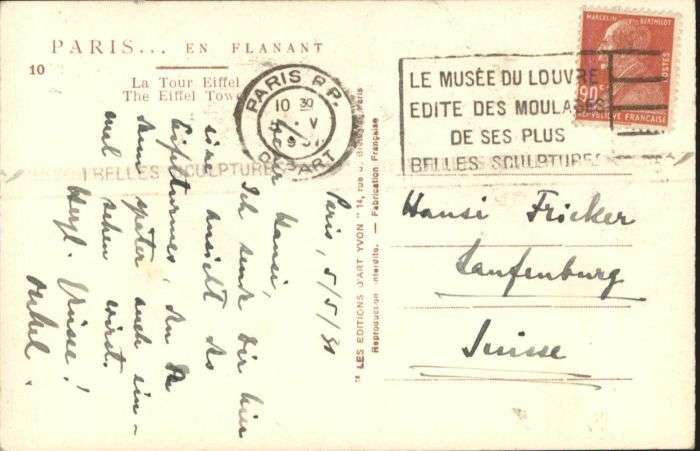 PARIS... EN FLANANT
10
La Tour Eiffel
The Eiffel Tow
PARIS R.P.
10 30
V
DEPART
LE MUSÉE DU LOUVRE
EDITE DES MOULAGES
DE SES PLUS
BELLES SCULPTURES
BELLES SCULPTURES
MARCELIN BERTHELOT
90c
POSTES
REPUBLIQUE FRANÇAISE
Paris, 5/5/30
Hansi,
Ich sende Dir hier
eine Ansicht des
Eiffelturmes, den Du
dann später auch ein-
mal sehen wirst.
Herzl. Grüsse!
Onkel.
"LES EDITIONS D'ART YVON" 14, rue
Paris
Reproduction interdite. — Fabrication Française
Hansi Fricker
Laufenburg
Suisse